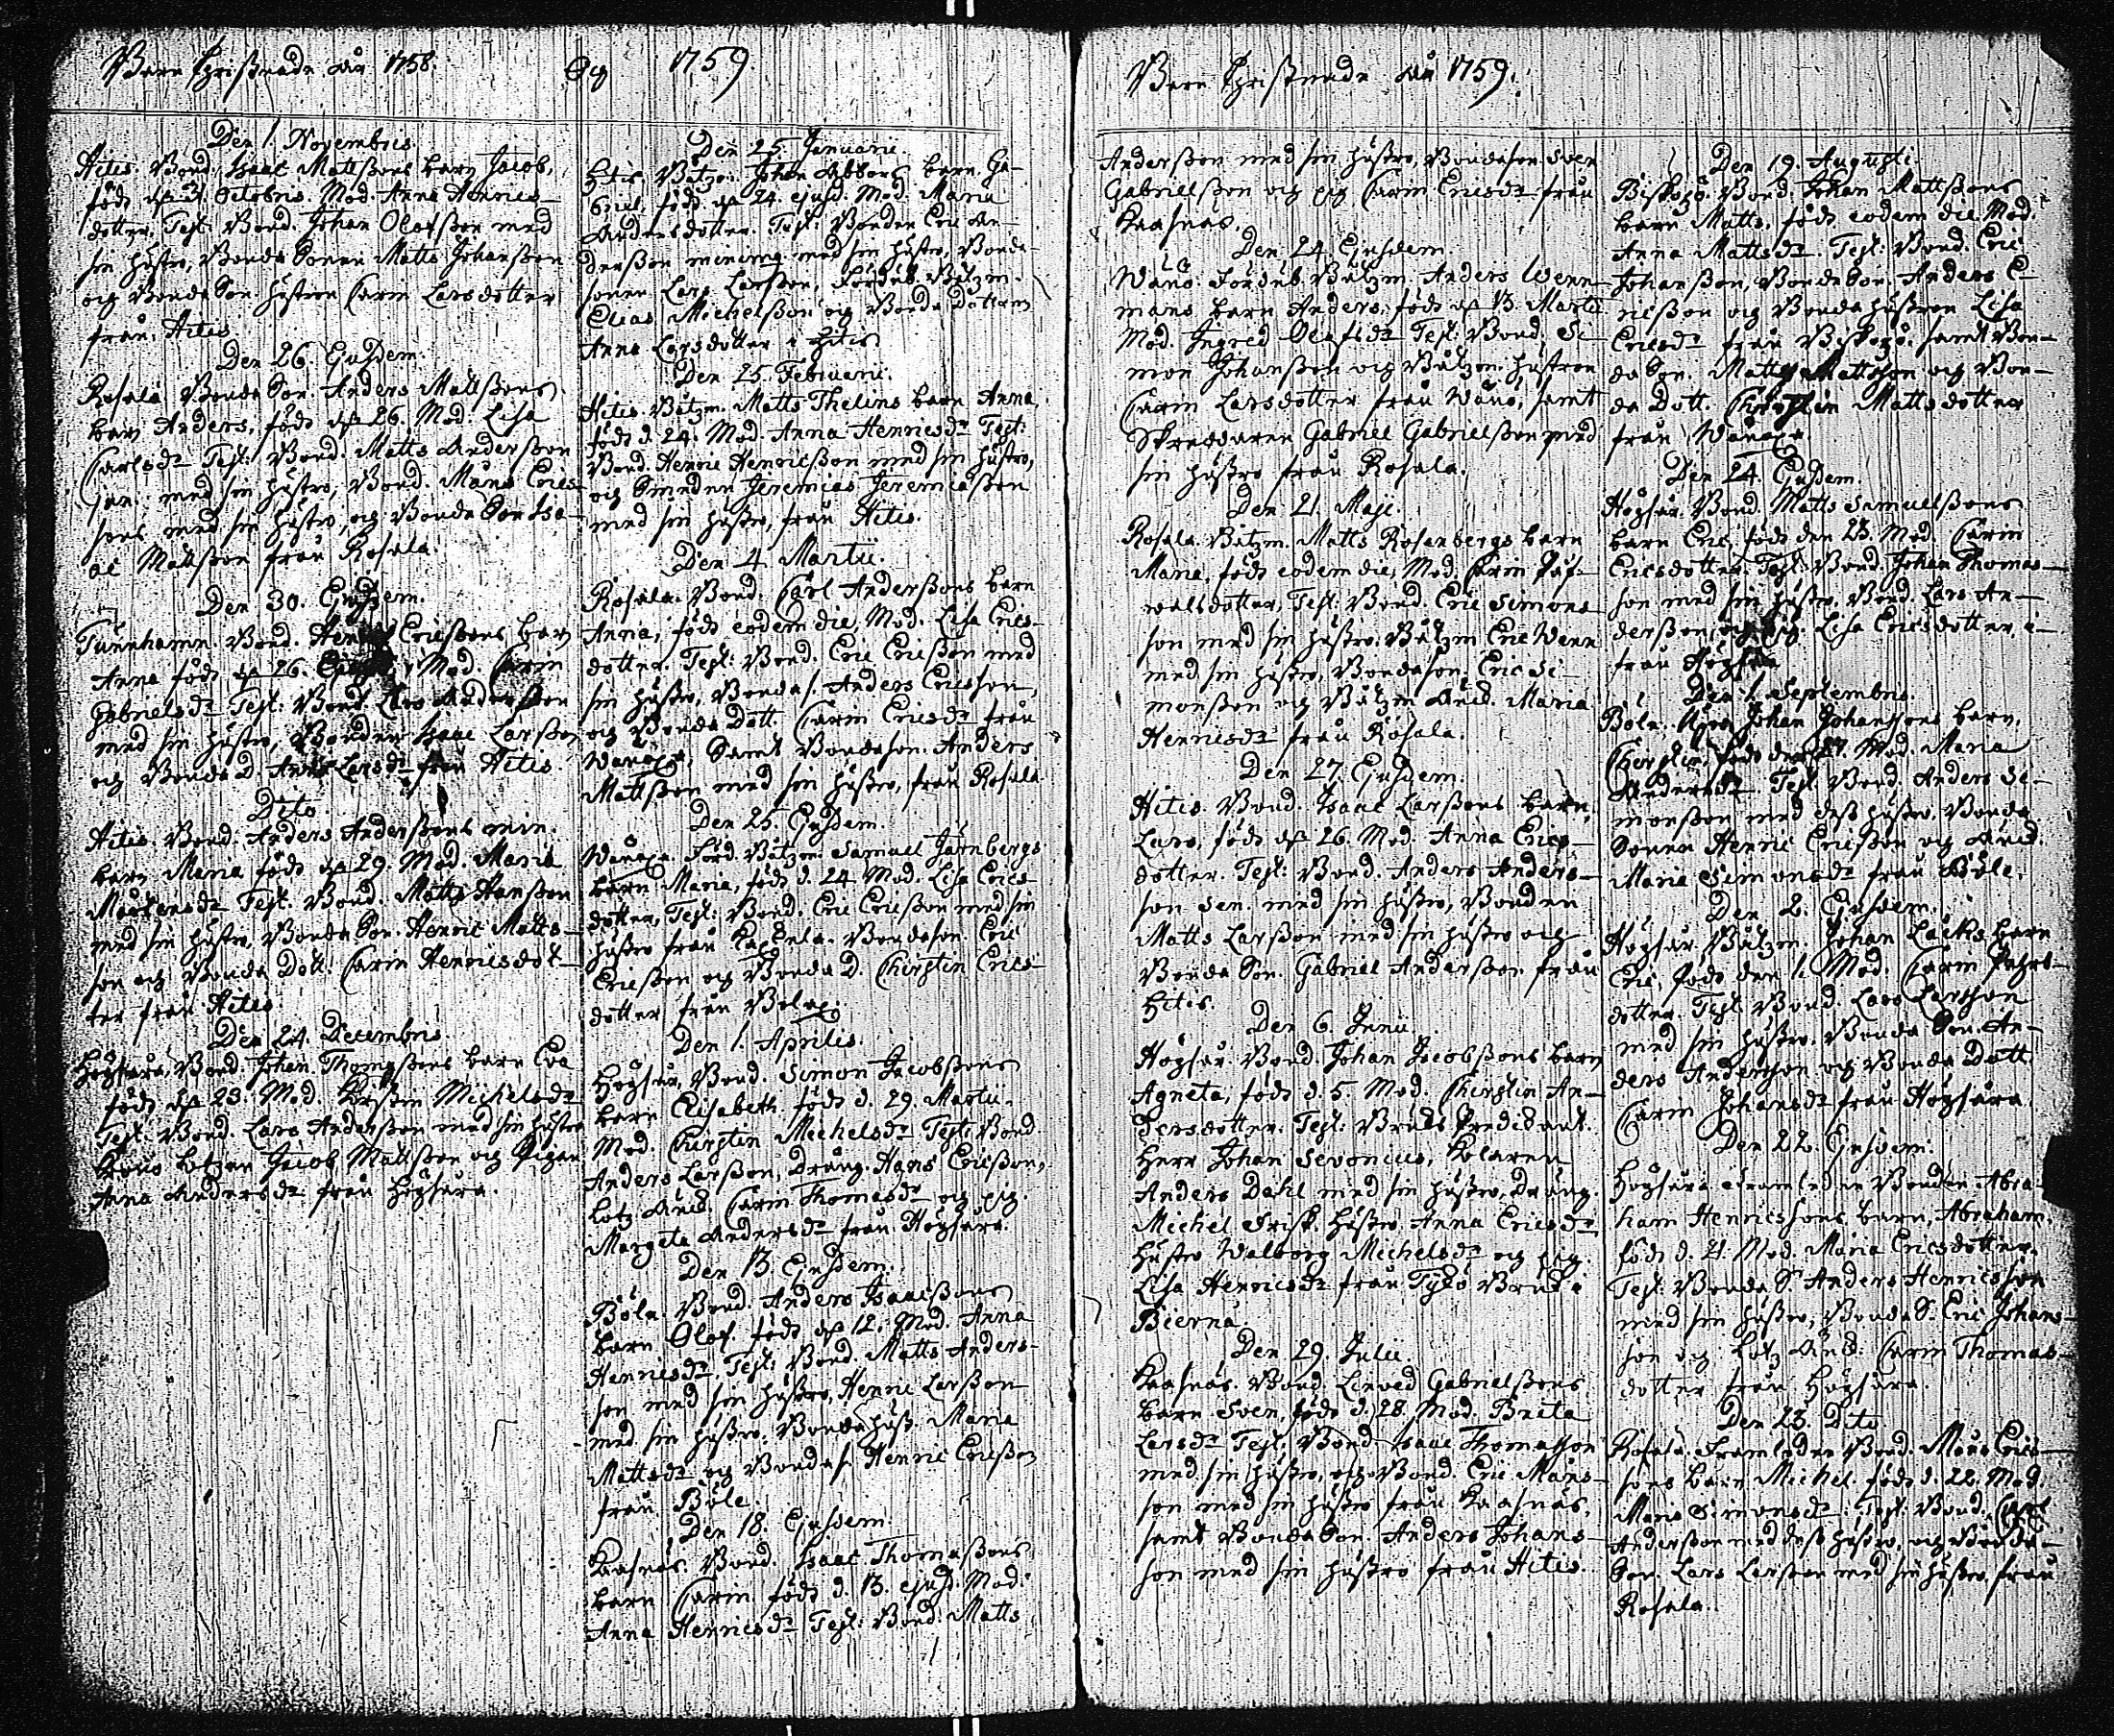 Barn Christnade åhr 1758.
Og 1759
Den 1. Novembris.
Hitis. Bond. Isaac Mattßons barn Jacob,
född d. 31 Octobris. Mod. Anna Henrics-
dotter. Test: Bond. Johan Olofßon med
sin hustro, Bonde Sonen Matts Johanßon
og Bonde Son. hustron Carin Larsdotter
från Hitis
Den 26. Ejusdem.
Rosala Bonde Son. Anders Mattßons
barn Anders, född d. 26. Mod. Lisa
Carlsdr Test: Bond. Matts Anderßon
jun. med sin hustro, Bond. Måns Erics-
sons med sin hustro, og Bonde Son Isa-
ac Mattßon från Rosala.
Den 30. Ejusdem.
Tunnhamn. Bond. Ericßons barn
Anna född d. 26. Mod. Carin
Gabrielsdr Test: Bond. Lars Anderßon
med sin hustro, Bonden Isaac Larßon
og Bonde D. Anna Larsdr från Hitis
Dito.
Hitis. Bond. Anders Anderßons min.
barn Maria född d. 29. Mod. Maria
Mårtensdr Test: Bond. Matts Hanßon
med sin hustro, Bonde Son. Henric Matts-
son og Bonde Dott. Carin Henricsdot-
ter från Hitis.
Den 24. Decembris.
Högsåra. Bond. Johan Thomsßons barn Eva
född d. 23. Mod. Kirstin Michelsdr
Test: Bond. Lars Anderßon med sin hustro
Lotzen Jacob Mattßon og Pigan
Anna Andersdr från Högsåra.
Den 25. Januarii.
Hitis Båtzm. Johan Abbors barn Ga-
briel, född d. 24. ejusd. Mod. Maria
Andersdotter. Test: Bonden Eric An-
derßon med sin hustro, Bonde-
sonen Lars Larßon, Båtzm.
Elias Michelßon og Bonde Dottern
Anna Larsdotter i Hitis
Den 25. Februarii.
Hitis. Båtzm. Matts Thelins barn Anna,
född d. 24. Mod. Anna Henricsdr Test:
Bond. Henric Henricßon med sin hustro,
og Smeden Jeremias Jeremiaßon
med sin hustro, från Hitis.
Den 4. Martii.
Rosala. Bond. Carl Anderßons barn
Anna, född eodem die, Mod. Lisa Erics-
dotter. Test: Bond. Eric Ericßon med
sin hustro, Bondes. Anders Ericsson,
og Bonde Dott. Carin Ericsdr från
Wänoxa, Samt Bondeson. Anders
Mattßon med sin hustro, från Rosala
Den 25. Ejusdem.
Wänoxa. Förd. Båtzm. Samuel Järnbergs
barn Maria, född d. 24. Mod. Lisa Erics-
dotter, Test: Bond. Eric Ericßon med sin
hustro från Bondeson Eric
Ericßon og Bonde D. Chirstin Erics-
dotter från
Den 1. Aprilis.
Högsår, Bond. Simon Jacobßons
barn Elisabeth. född d. 29. Martii.
Mod. Chirstin Michelsdr Test: Bond.
Anders Larßon, Dräng. Hans Ericßon,
Lotz Änk. Carin Thomasdr og pig.
Margeta Andersdr från Högsåra.
Den 13. Ejusdem.
Böle. Bond. Anders Isaacßons
barn Olof. född d. 12. Mod. Anna
Henricsdr, Test: Bond. Matts Anders-
son med sin hustro, Henric Larßon
med sin hustro. Bonde hust. Maria
Mattsdr og Bondes. Henric Ericßon
från Böle.
Den 18. Ejusdem.
Kasnäs. Bond. Isaac Thomaßons
barn Carin född d. 13. ejusd. Mod.
Anna Henricsdr Test: Bond. Matts
Barn Christnade åhr 1759.
Anderßon med sin hustro, Bondeson. Sven
Gabrielßon og pig. Carin Ericsdr från
Kasnäs.
Den 24. Ejusdem
Wänö. Båtzm. Anders Wenn-
mans barn Anders, född d. 13. Martii
Mod. Ingred Olofsdr Test: Bond. Si-
mon Johanßon og Båtzm. hustron
Carin Larsdotter från Wänö, samt
Skreddaren Gabriel Gabrielßon med
sin hustro från Rosala.
Den 21. Maji.
Rosala. Båtzm. Matts Rosenbergs barn
Maria, född eodem die, Mod. Carin
dotter, Test: Bond. Eric Simons-
son med sin hustro. Båtzm Eric Wenn
med sin hustro, Bondeson. Eric Si-
monßon og Båtzm Änk. Maria
Henricsdr från Rosala.
Den 27. Ejusdem.
Hitis. Bond. Isaac Larßons barn,
Lars, född d. 26. Mod. Anna Erics-
dotter. Test: Bond. Anders Anders-
son sen. med sin hustro, Bonden
Matts Larßon med sin hustro og
Bonde Son. Gabriel Anderßon från
Hitis.
Den 6. Junii.
Högsår. Bond. Johan Jacobßons barn
Agneta, född d. 5. Mod. Chirstin An-
dersdotter. Test: Bruks Predikant.
Herr Johan Sevonius, Kolaren
Anders Dahl med sin hustro, Dräng.
Michel Frisk. hustro Anna Ericsdr
hustro Walborg Michelsdr og pig.
Lisa Henricsdr från Tykö Bruk i
Bierna.
Den 29. Julii.
Kasnäs. Bond Gabrielßons
barn Sven, född d. 28. Mod. Brita
Larsdr Test: Bond. Isaac Thomaßon
med sin hustro, og Bond. Eric Måns-
son med sin hustro från Kasnäs,
samt Bonde Son. Anders Johans-
son med sin hustro från Hitis.
Den 19. Augusti.
Biskopsö. Bond. Johan Mattßons
barn Matts, född eodem die. Mod.
Anna Mattsdr. Test: Bond. Eric
Johanßon, Bonde Son. Anders E-
ricßon og Bonde hustron Lisa
Ericsdr från Biskopsö. samt Bon-
de Son. Matts Mattßon og Bon-
de Dott. Christin Mattsdotter
från Wänoxa.
Den 24. Ejusdem.
Högsår. Bond. Matts Samuelßons
barn Eric, född den 23. Mod. Carin
Ericsdotter. Test: Bond. Johan Thomas-
son med sin hustro. Bond. Lars An-
derßon, og pig. Lisa Ericsdotter,
från Högsåra
Den 1. Septembris.
Böle. Johan Johanßons barn,
Chirstin, född den 27. Mod. Maria
Andersdr Test: Bond. Anders Si-
monßon med dess hustro, Bonde
Sonen Henric Ericßon og Änk.
Maria Simonsdr från Böle.
Den 2. Ejusdem.
Högsår. Båtzm. Johan Lax barn
Eric, född den 1. Mod. Carin
dotter. Test: Bond. Lars Larßon
med sin hustro. Bonde Son. An-
ders Anderßon og Bonde Dott.
Carin Johansdr från Högsåra.
Den 22. Ejusdem.
Högsåra. Framledne Bonden Abra-
ham Henricssons barn, Abraham.
född d. 21. Mod. Maria Ericsdotter.
Test: Bonde S. Anders Henricsson
med sin hustro, Bonde S. Eric Johans-
son og Lotz Änk. Carin Thomas-
dotter från Högsåra.
Den 23. Dito
Rosala. Framledne Bond. Måns Erics-
sons barn Michel född d. 22. Mod.
Maria Simonsdr. Test: Bond. Carl
Anderßon med dess hustro, og Bonde
Son. Lars Larßon med sin hustro, från
Rosala.